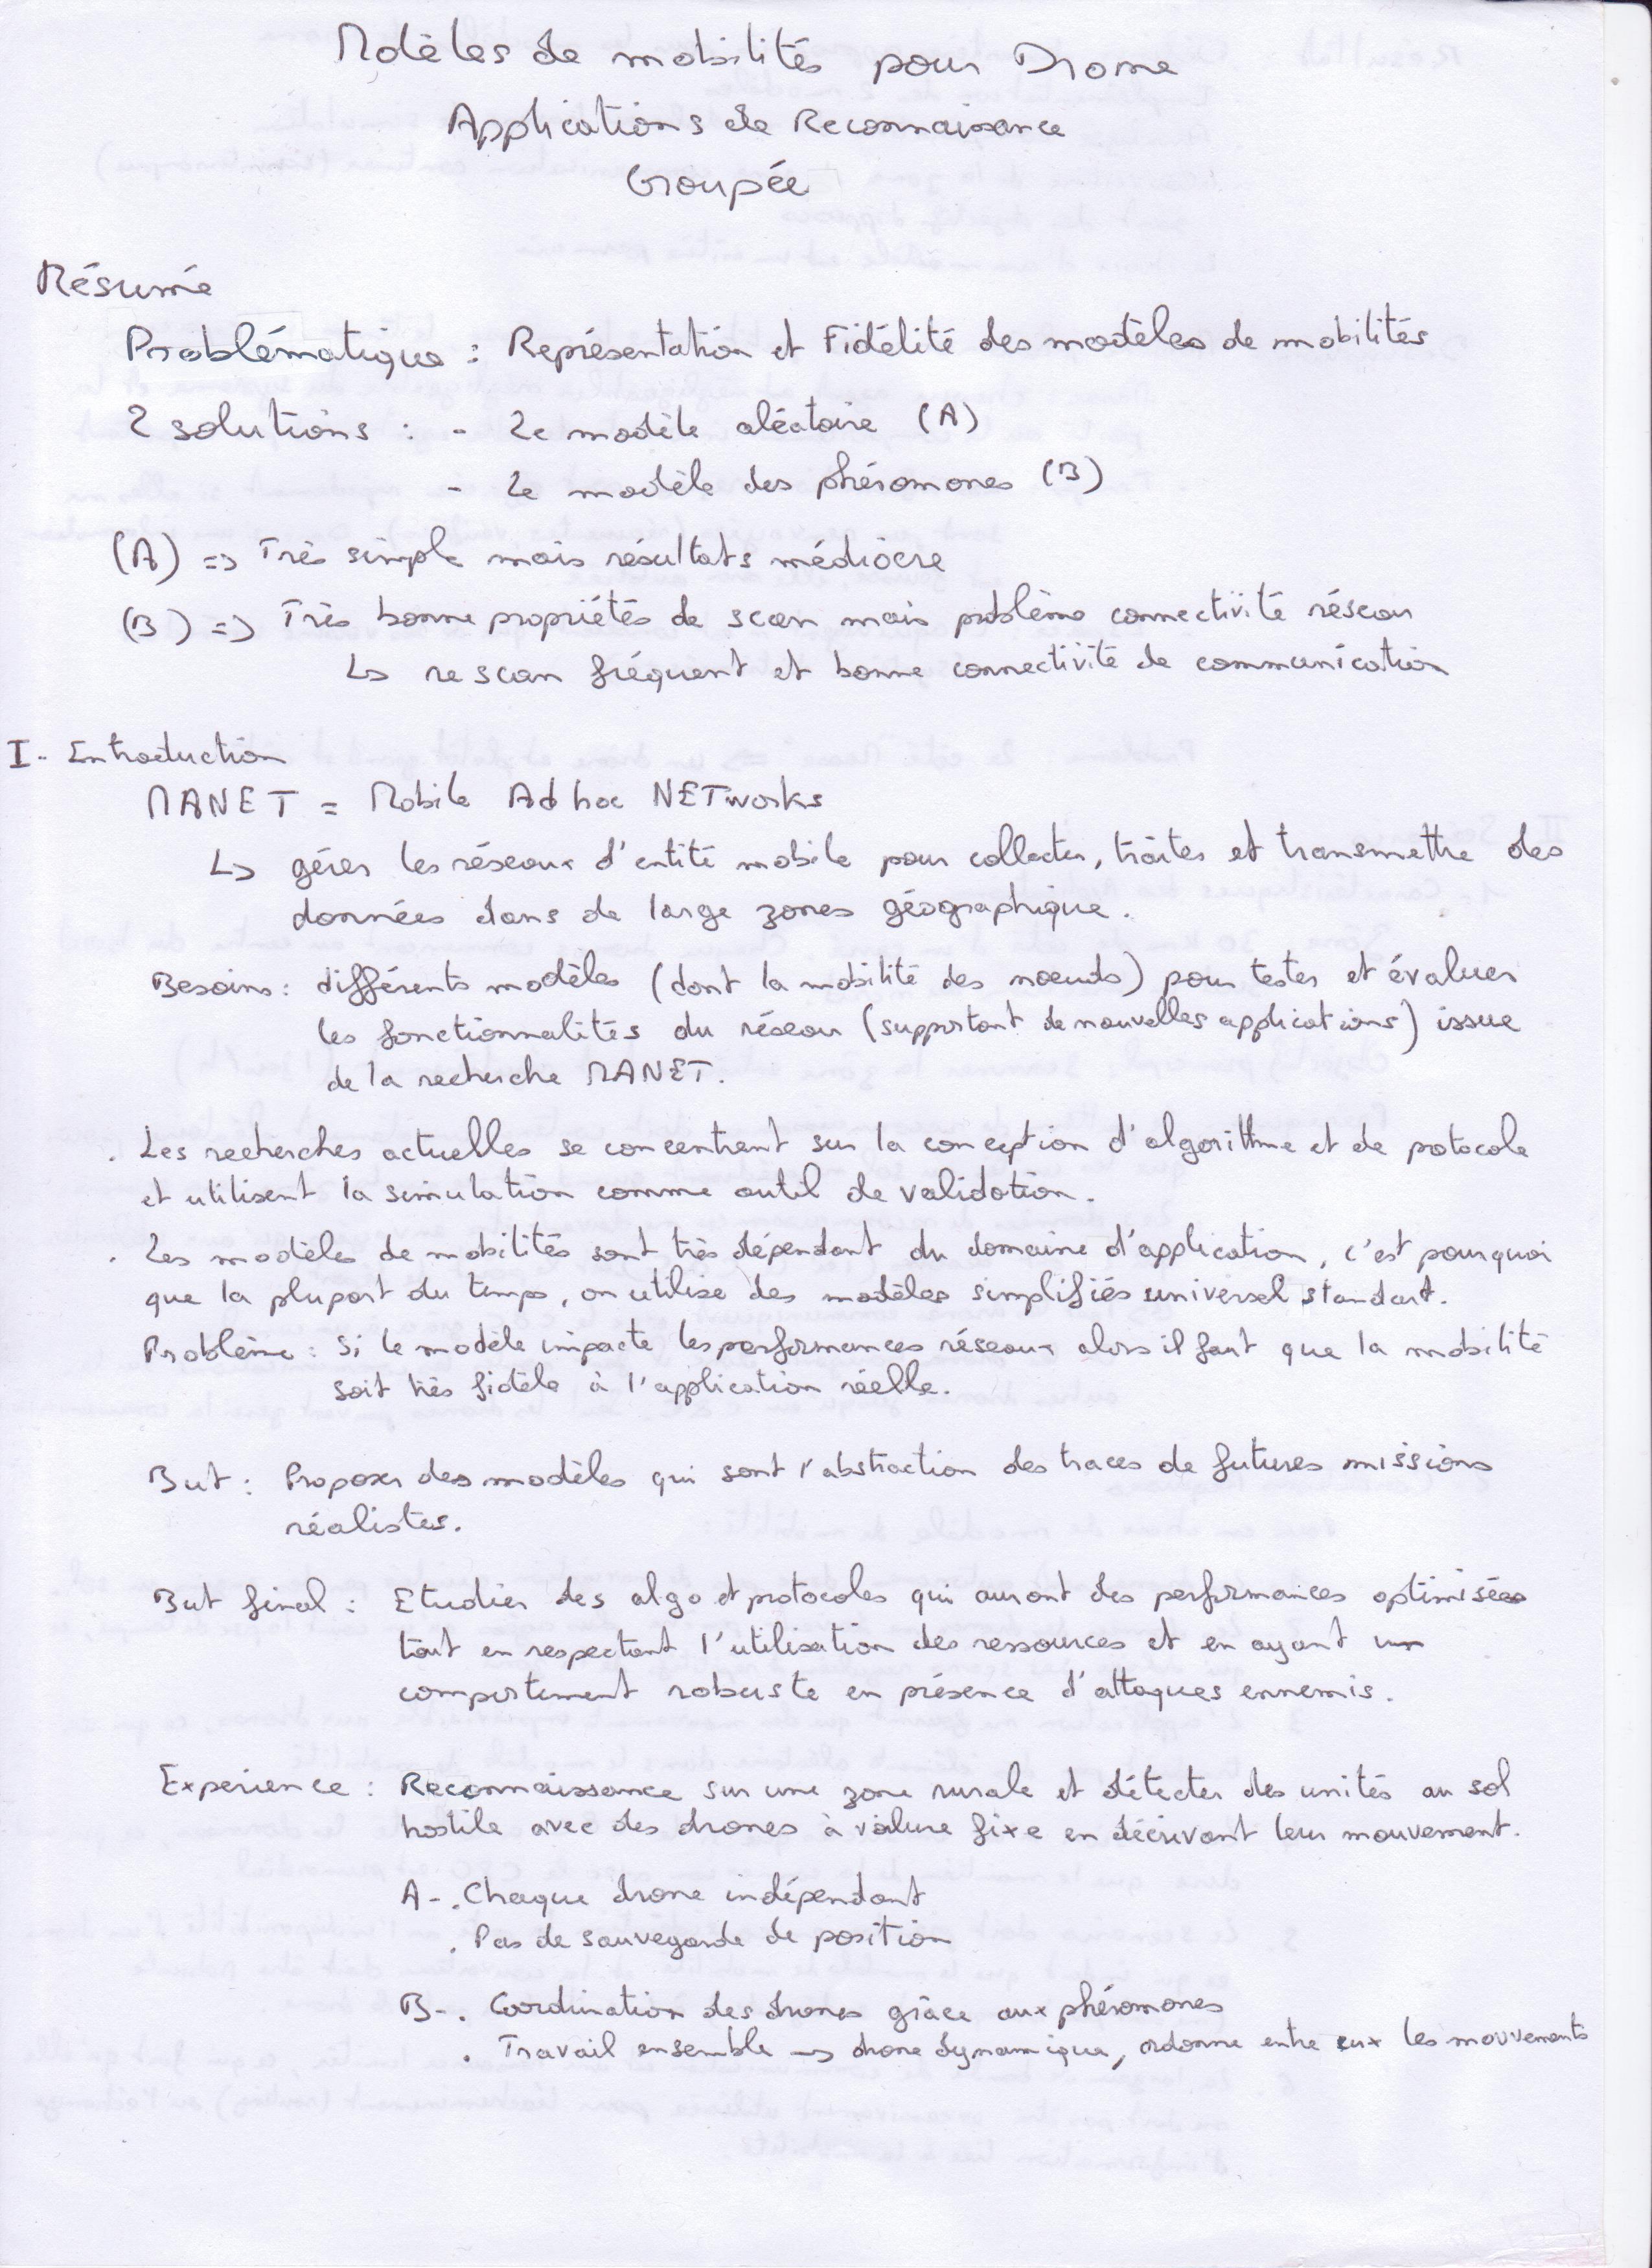 Modèles de mobilités pour Drone
Applications de Reconnaissance
Groupée
Résumé
Problématique : Représentation et Fidélité des modèles de mobilités
2 solutions : - Le modèle aléatoire (A)
- Le modèle des phéromones (B)
(A) => Très simple mais résultats médiocre
(B) => Très bonne propriétés de scan mais problème connectivité réseau
↳ rescan fréquent et bonne connectivité de communication
I - Introduction
MANET = Mobile Ad hoc NETworks
↳ gérer les réseaux d'entité mobile pour collecter, traiter et transmettre des
données dans de large zones géographique.
Besoins : différents modèles (dont la mobilité des nœuds) pour tester et évaluer
les fonctionnalités du réseau (supportant de nouvelles applications) issue
de la recherche MANET.
. Les recherches actuelles se concentrent sur la conception d'algorithme et de protocole
et utilisent la simulation comme outil de validation.
. Les modèles de mobilités sont très dépendant du domaine d'application, c'est pourquoi
que la plupart du temps, on utilise des modèles simplifiés universel standart.
Problème : Si le modèle impacte les performances réseaux alors il faut que la mobilité
soit très fidèle à l'application réelle.
But : Proposer des modèles qui sont l'abstraction des traces de futures missions
réalistes.
But final : Etudier des algo et protocoles qui auront des performances optimisées
tout en respectant l'utilisation des ressources et en ayant un
comportement robuste en présence d'attaques ennemis.
Experience : Reconnaissance sur une zone rurale et détecter des unités au sol
hostile avec des drones à voilure fixe en décrivant leur mouvement.
A - . Chaque drone indépendant
. Pas de sauvegarde de position
B - . Coordination des drones grâce aux phéromones
. Travail ensemble → drone dynamique, ordonne entre eux les mouvements